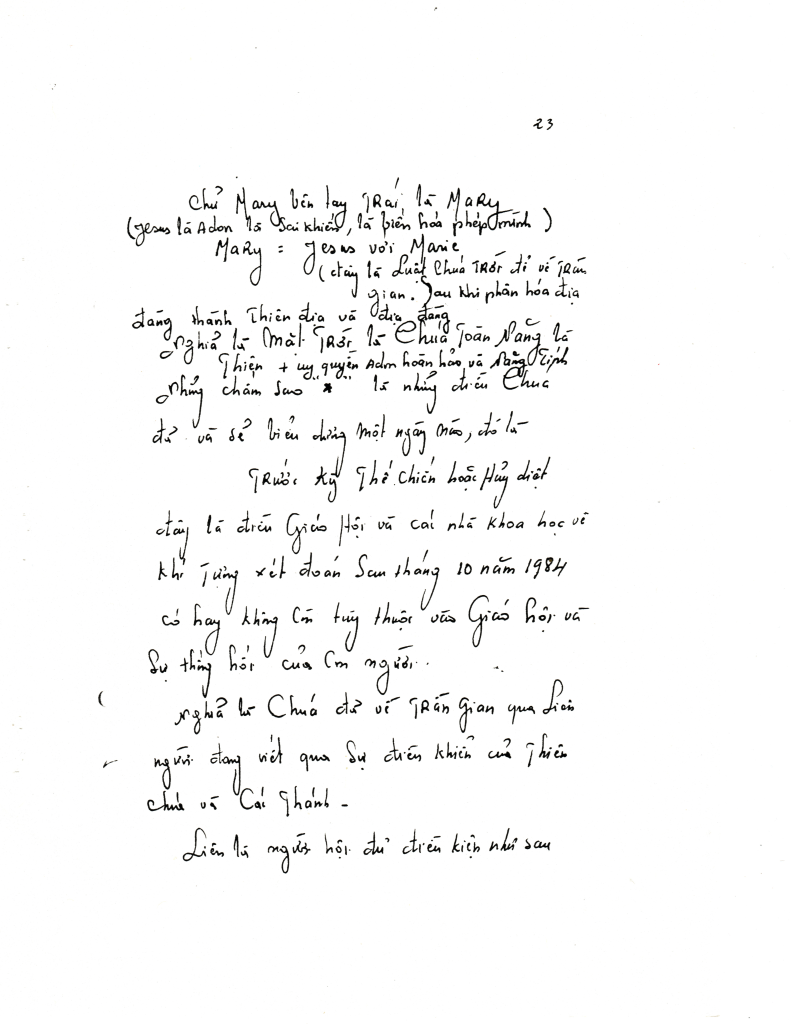 23
Chử Mary bên tay TRái, là MARY
(Jesus là Adon là Sai khiến, là biến hóa phép mình)
MARY = Jesus với Marie
(đây là Luật Chúa TRời để về TRần
gian. Sau khi phân hóa địa
đàng thành Thiên địa và địa đàng
Nghỉa là Mặt TRời là Chúa Toàn Năng là
Thiện + uy quyền Adon hoàn hảo và Năng Tính
Những chấm sao "*" là những điều Chúa
đả và sẻ biểu dương một ngày nào, đó là
TRước kỳ Thế chiến hoặc Hủy diệt
đây là điều Giáo Hội và cái nhà khoa học về
khí Tượng xét đoán Sau tháng 10 năm 1984
có hay không Còn tùy thuộc vào Giáo hội và
Sự thống hối của Con người.
Nghỉa là Chúa đả về TRần Gian qua Liên
người đang viết qua Sự điều khiển của Thiên
chúa và Cái Thánh -
Liên là người hội đủ điều kiện như sau